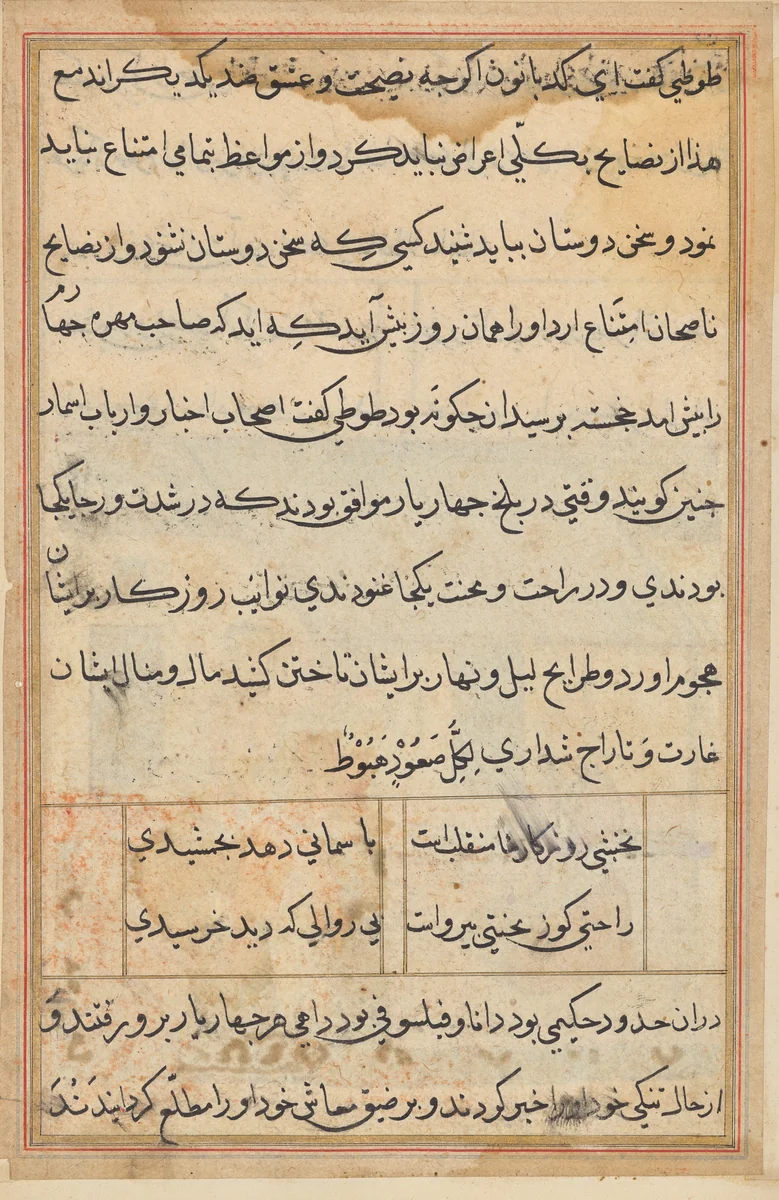 طوطي كفت اي كد بانون اكرجه نصيحت و عشق ضد يكديكراند مع
هذا از نصايح بكلّي اعراض نبايد كرد و از مواعظ بتمامي امتناع نبايد
نمود و سخن دوستان ببايد شنيد كسي كِه سخن دوستان نشنود و از نصايح
ناصحان امتِنَاع ارد او را همان روز بيش آيد كِه ايد كه صاحب مهره جهارم
را بيش امد خجسته برسيد ان جكونَه بود طوطي كفتَ اصحاب اخبار و ارباب اسمار
جنين كويند وقتي در بلخ جهار يار موافق بودند كه در شدت و رجا يكجا
بودندي و در راحت و محنت يكجا غنودندي نوايب روزكار بر ايشان
هجوم اورد و طرايح ليل و نهار بر ايشان تاختن كنيد مال و منال ايشان
غارت وَ تاراج شد اري لِكُلِّ صَعُوْدٍ هَبُوْطٌ
نخشبي روزكارها منقلب است
با سماني دهد بجمشيدي
راحتي كو ز محنتي بيرو است
بي زوالي كه ديد خرسيدي
در ان حدود حكيمي بود دانا و فيلسوفي بود داهي هر جهار يار بر و رفتند وَ
از حال تنكي خود او را خبر كردند و بر ضيق معاش خود او را مطلّع كردانيدَنْدَ